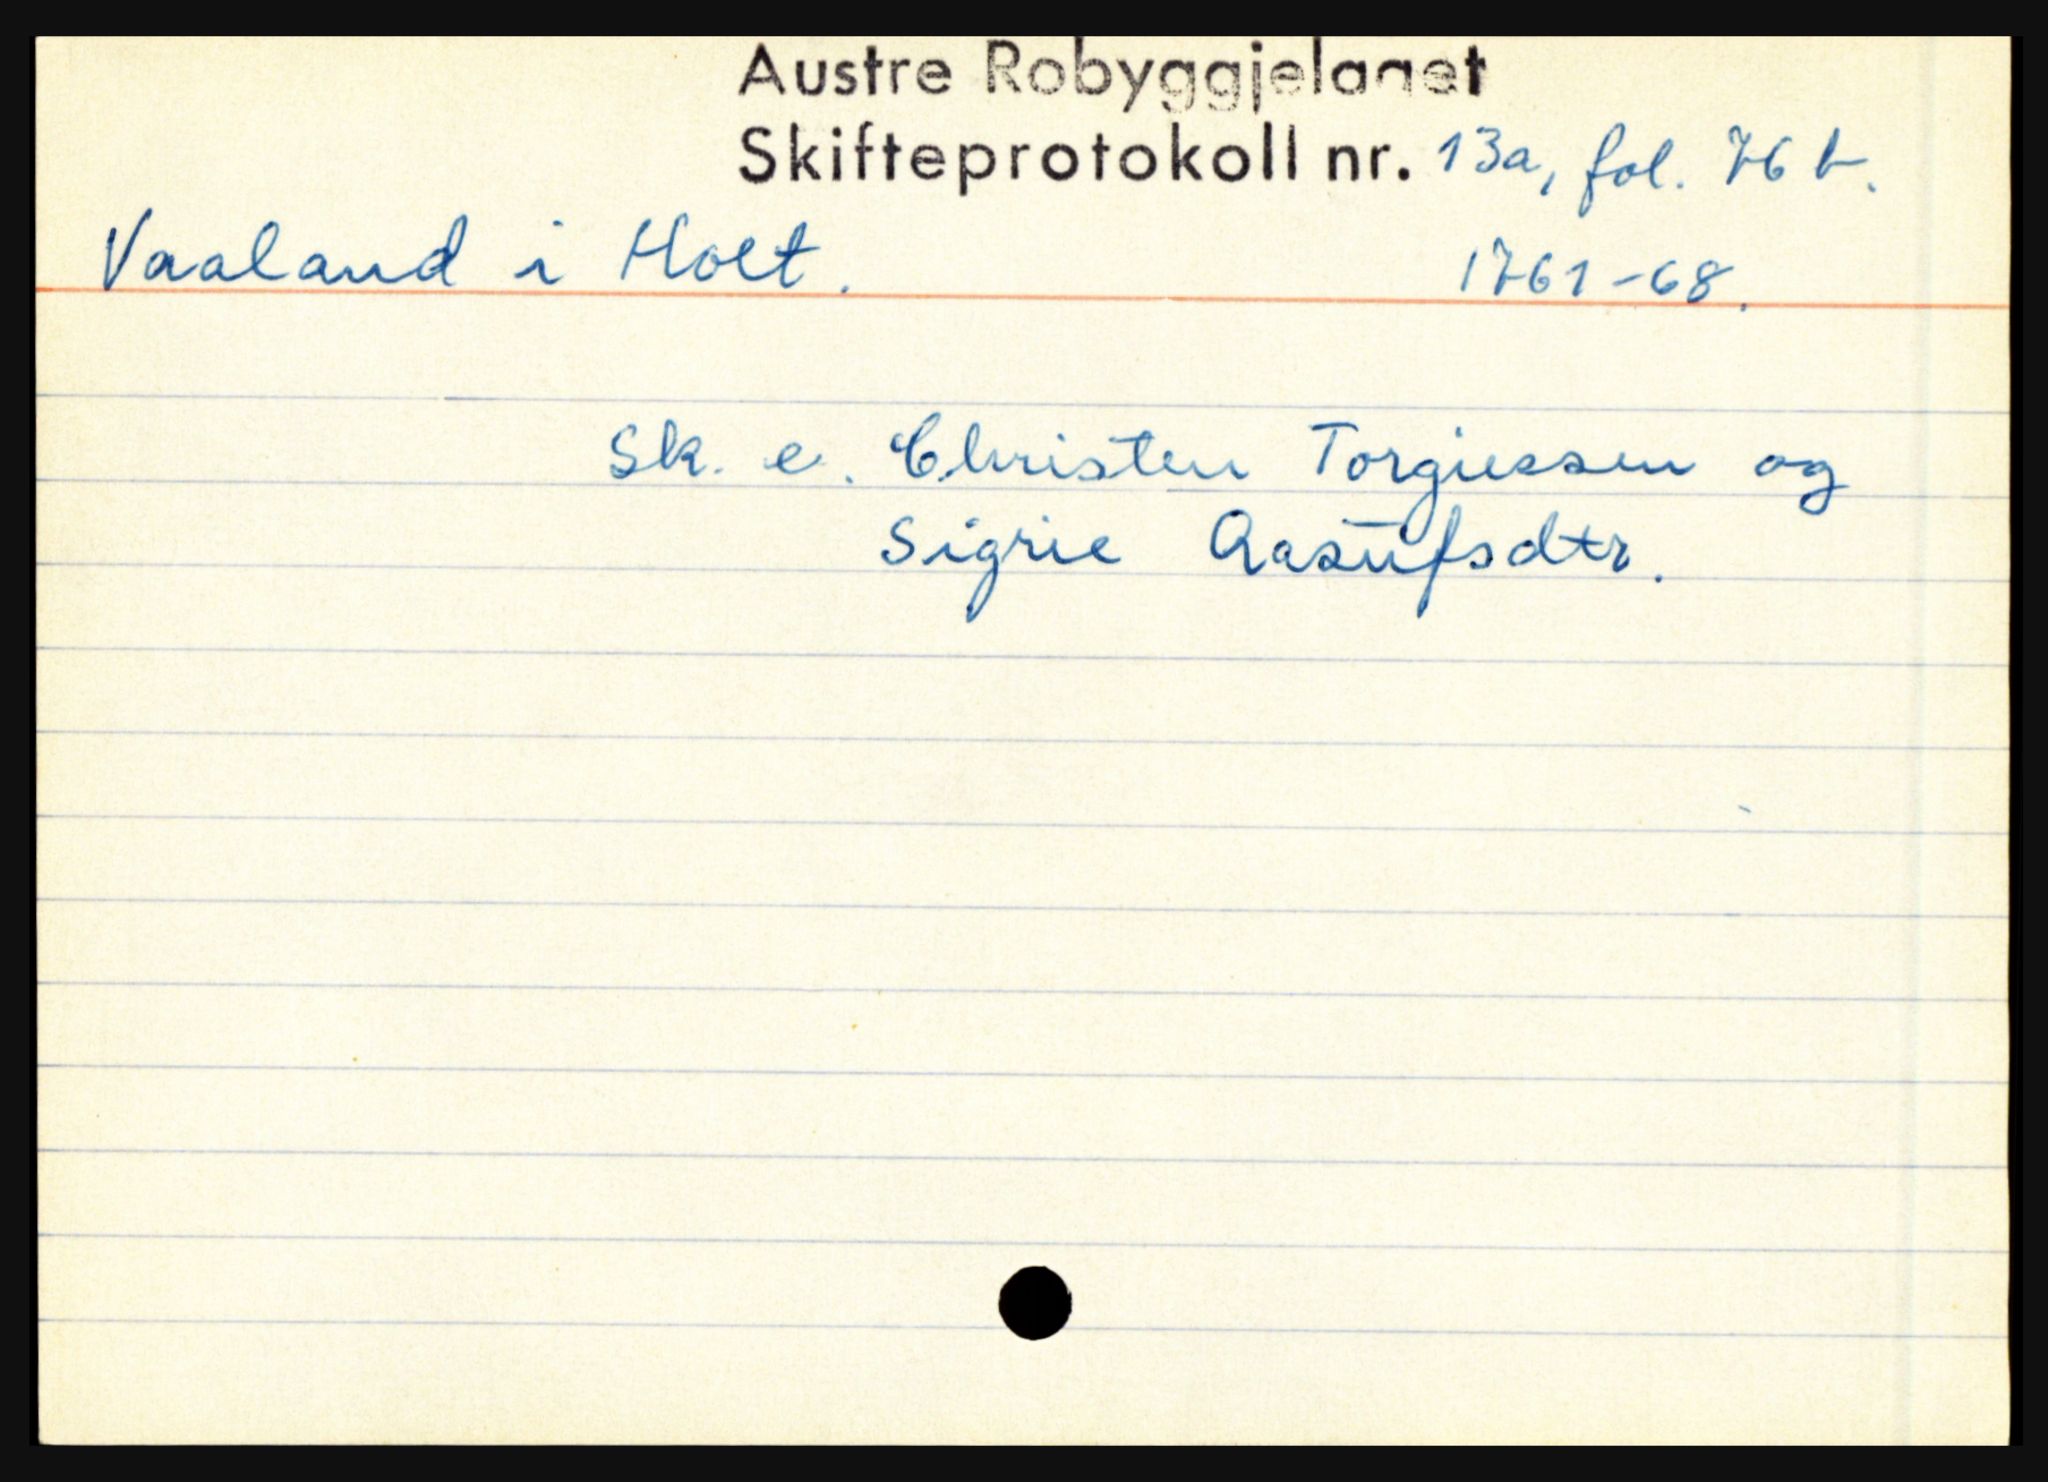 Austre Robyggjelaget
Skifteprotokoll nr. 13a, fol. 76 b.
Vaaland i Holt. 1761-68.
Sk. e. Christen Torgiessen og
Sigrie Aasufsdtr.